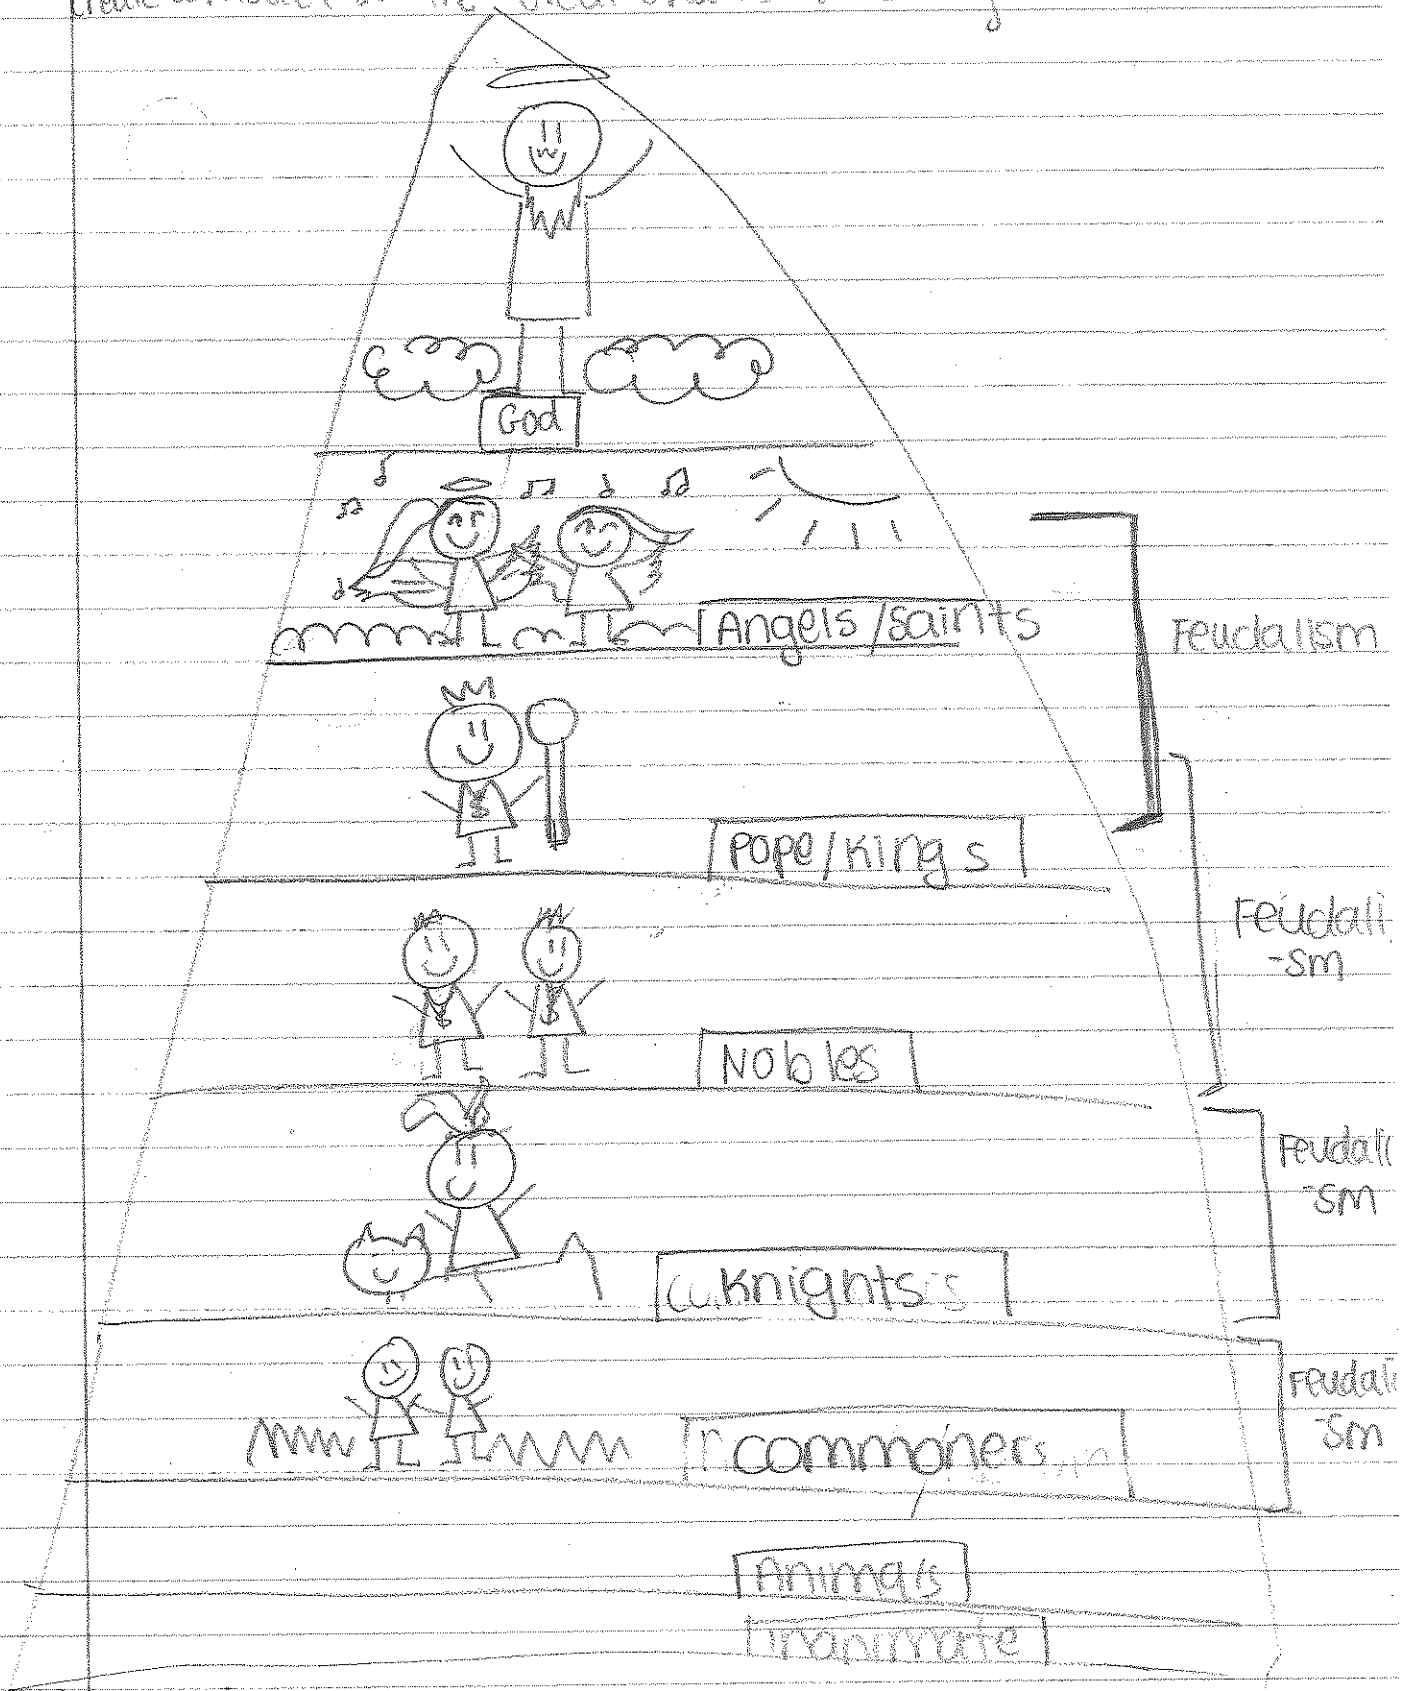 God
Angels/Saints
Feudalism
Pope/Kings
Feudali
-sm
Nobles
Feudali
-sm
Knights
Feudali
-sm
commoners
Animals
inanimate